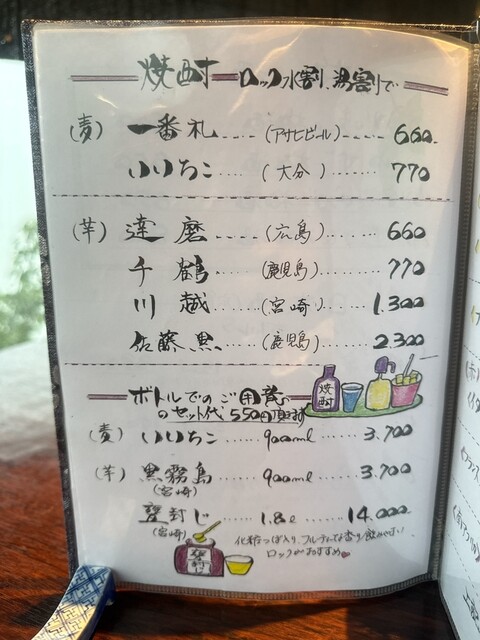 焼酎 ロック、水割り、湯割りで
(麦) 一番札 (アサヒビール) 660
いいちこ (大分) 770
(芋) 達磨 (広島) 660
千鶴 (鹿児島) 770
川越 (宮崎) 1,300
佐藤黒 (鹿児島) 2300
焼酎
ボトルでのご用意
のセット代 550円頂きます
(麦) いいちこ 900ml 3,700
(芋) 黒霧島 900ml 3,700
(宮崎)
甕封じ 1.8ℓ 14,000
(宮崎) 化粧つぼ入り フルーティな香り 飲みやすい
ロックがおすすめ♥
甕封じ